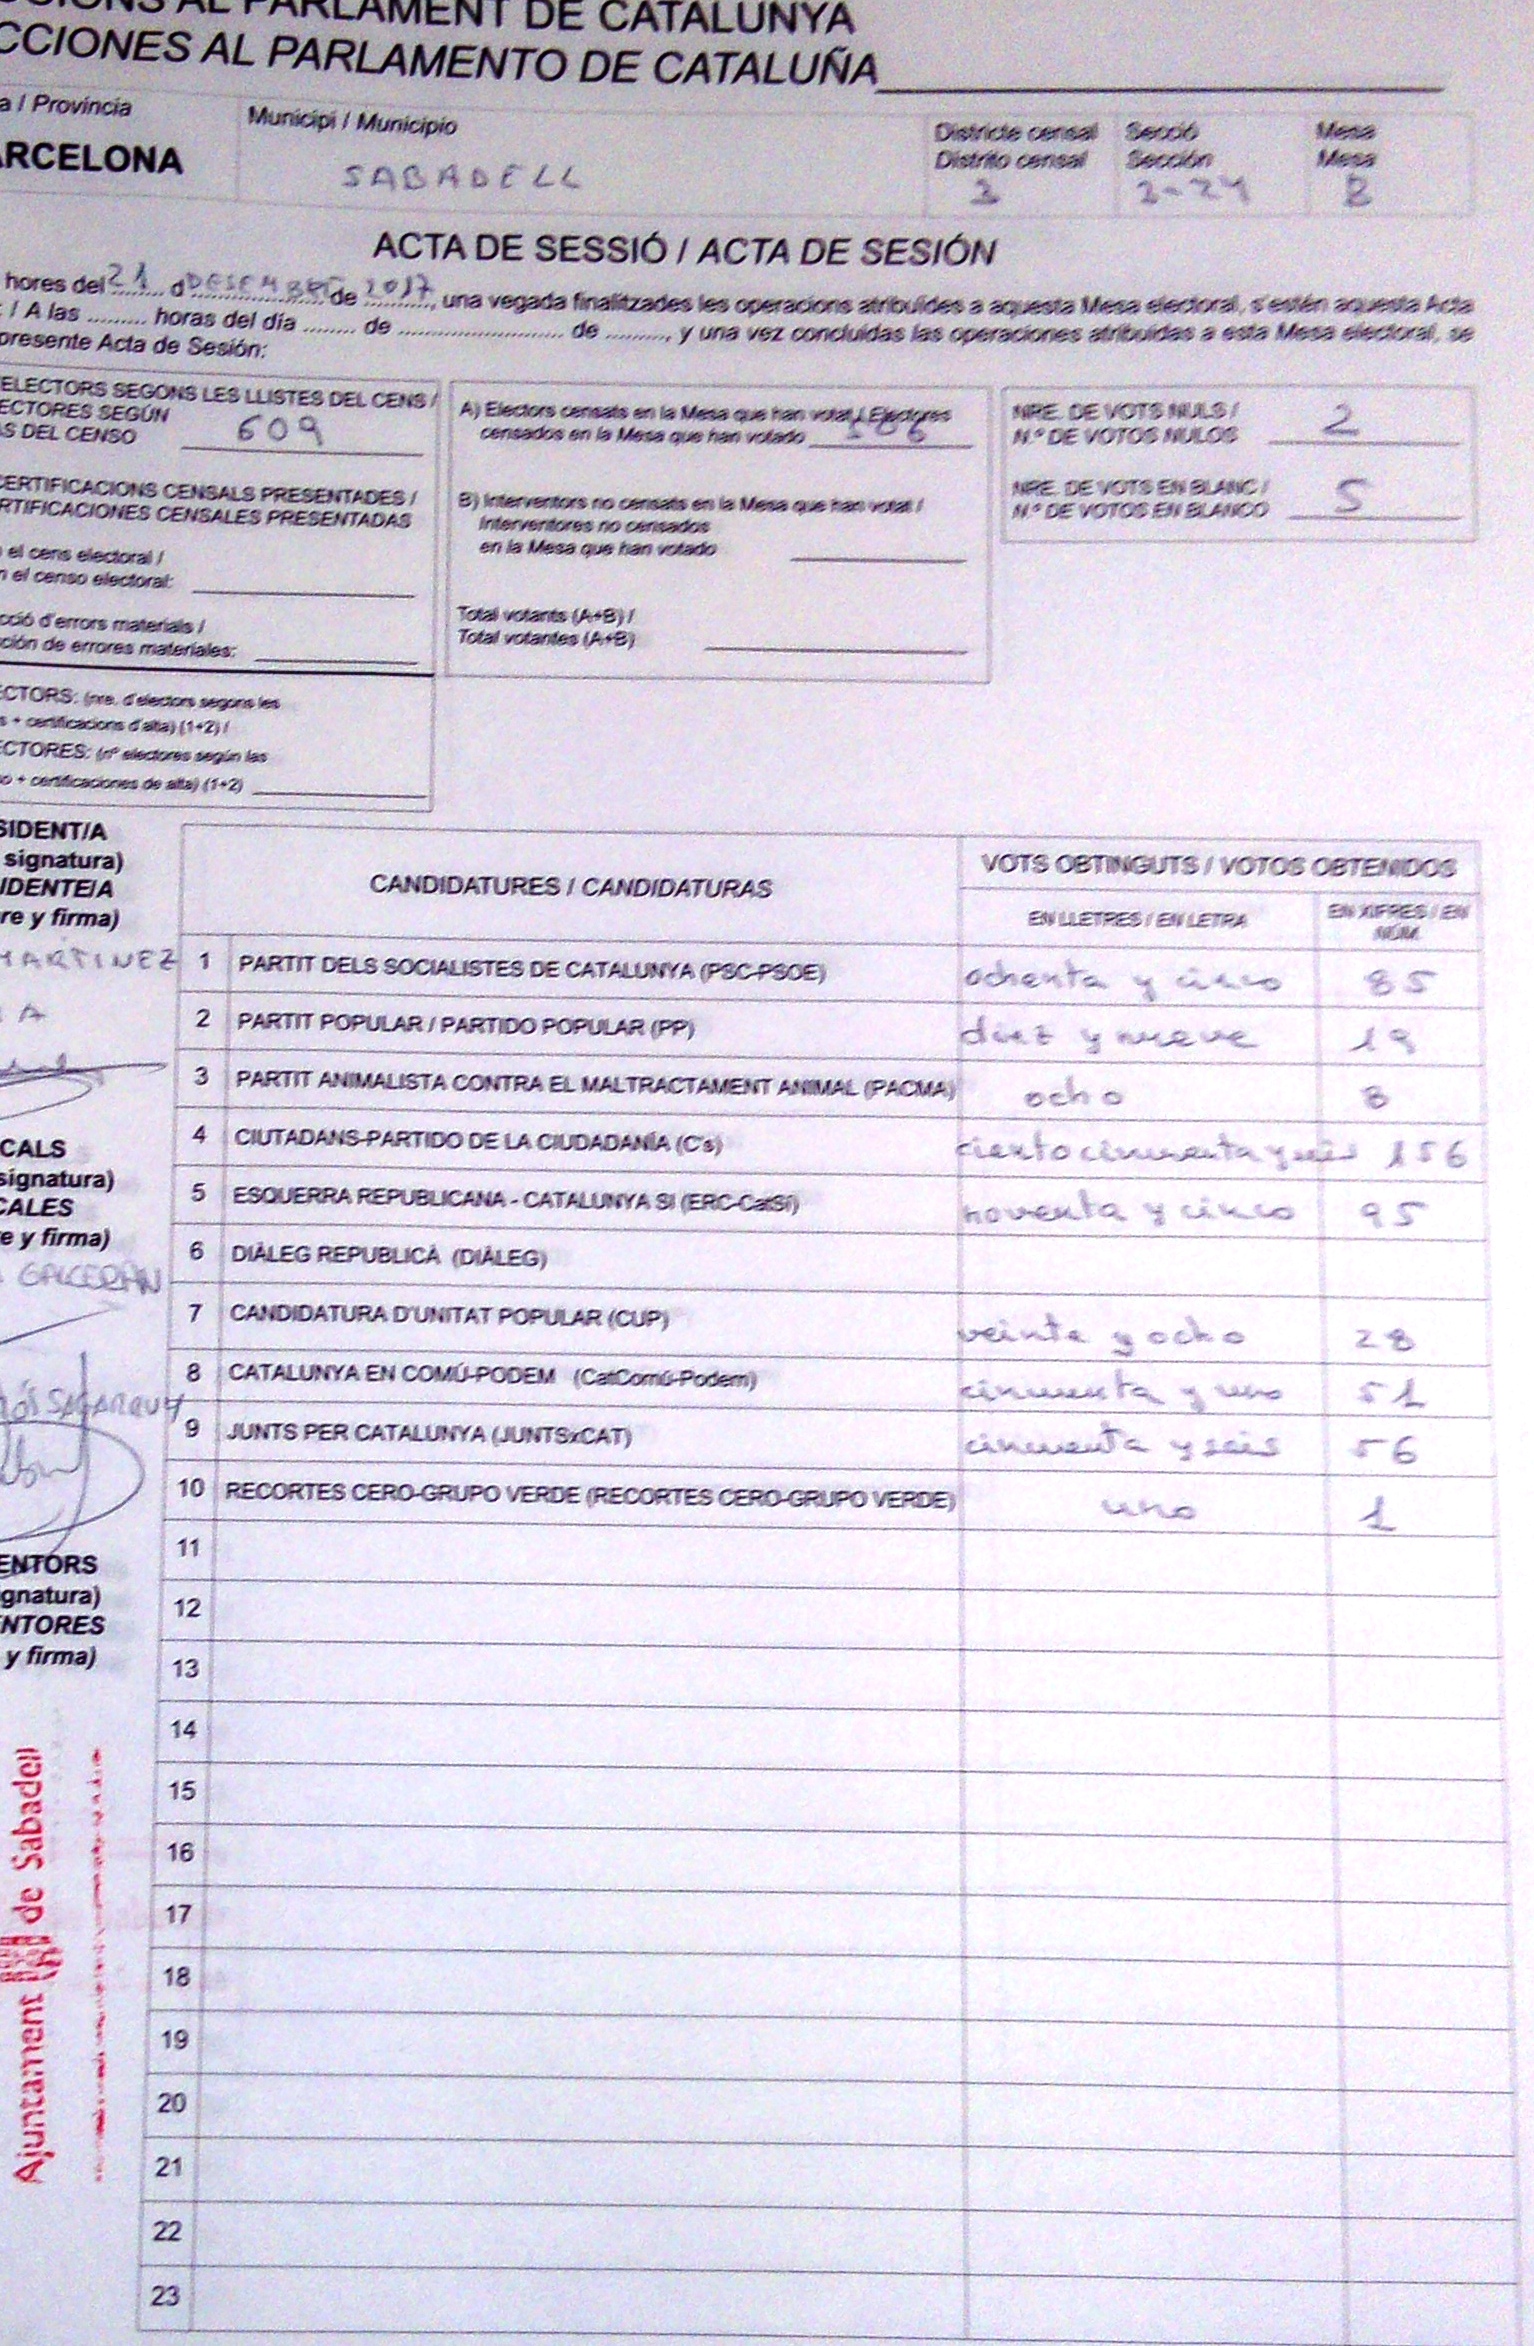 CCIONS AL PARLAMENT DE CATALUNYA
CCIONES AL PARLAMENTO DE CATALUÑA
a / Provincia
ARCELONA
Municipi / Municipio
SABADELL
Districte censal
Distrito censal
3
Secció
Sección
Mesa
Mesa
B
ACTA DE SESSIÓ / ACTA DE SESIÓN
hores del 21 d DESEMBRE de 2017, una vegada finalitzades les operacions atribuïdes a aquesta Mesa electoral, s'estén aquesta Acta
: / A las ......... horas del día ........ de ......................... de ........., y una vez concluidas las operaciones atribuidas a esta Mesa electoral, se
presente Acta de Sesión:
ELECTORS SEGONS LES LLISTES DEL CENS /
ECTORES SEGÚN
AS DEL CENSO 609
CERTIFICACIONS CENSALS PRESENTADES /
RTIFICACIONES CENSALES PRESENTADAS
el cens electoral /
n el censo electoral:
cció d'errors materials /
ción de errores materiales:
ECTORS: (nre. d'electors segons les
s + certificacions d'alta) (1+2) /
ECTORES: (nº electores según las
o + certificaciones de alta) (1+2)
A) Electors censats en la Mesa que han votat / Electores
censados en la Mesa que han votado 506
B) Interventors no censats en la Mesa que han votat /
Interventores no censados
en la Mesa que han votado
Total votants (A+B) /
Total votantes (A+B)
NRE. DE VOTS NULS /
N.º DE VOTOS NULOS 2
NRE. DE VOTS EN BLANC /
N.º DE VOTOS EN BLANCO 5
SIDENT/A
signatura)
IDENTE/A
re y firma)
MARTINEZ
CALS
signatura)
CALES
e y firma)
GALCERAN
ENTORS
gnatura)
NTORES
y firma)
Ajuntament de Sabadell
CANDIDATURES / CANDIDATURAS
VOTS OBTINGUTS / VOTOS OBTENIDOS
EN LLETRES / EN LETRA
EN XIFRES / EN
NÚM.
1 PARTIT DELS SOCIALISTES DE CATALUNYA (PSC-PSOE) ochenta y cinco 85
2 PARTIT POPULAR / PARTIDO POPULAR (PP) diez y nueve 19
3 PARTIT ANIMALISTA CONTRA EL MALTRACTAMENT ANIMAL (PACMA) ocho 8
4 CIUTADANS-PARTIDO DE LA CIUDADANÍA (C's) ciento cincuenta y seis 156
5 ESQUERRA REPUBLICANA - CATALUNYA SÍ (ERC-CatSí) noventa y cinco 95
6 DIÀLEG REPUBLICÀ (DIÀLEG)
7 CANDIDATURA D'UNITAT POPULAR (CUP) veinte y ocho 28
8 CATALUNYA EN COMÚ-PODEM (CatComú-Podem) cincuenta y uno 51
9 JUNTS PER CATALUNYA (JUNTSxCAT) cincuenta y seis 56
10 RECORTES CERO-GRUPO VERDE (RECORTES CERO-GRUPO VERDE) uno 1
11
12
13
14
15
16
17
18
19
20
21
22
23